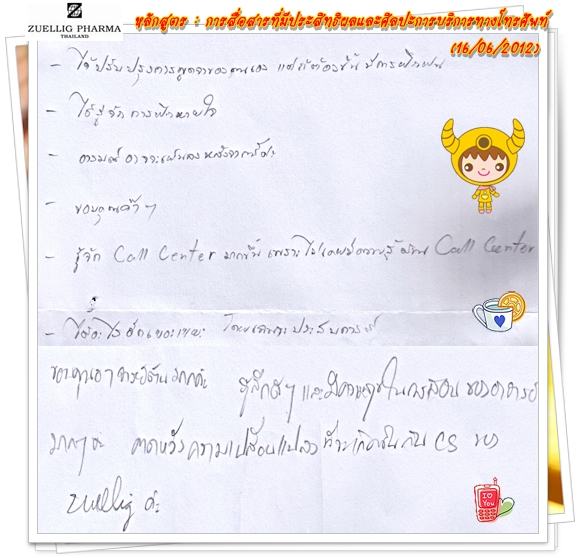 ZUELLIG PHARMA
THAILAND
หลักสูตร : การสื่อสารที่มีประสิทธิผลและศิลปะการบริการทางโทรศัพท์
(16/06/2012)
- ได้ปรับปรุงการพูดจาของตนเอง แต่ก็ต้องมีการฝึกฝน
- ได้รู้จักการฝึกหายใจ
- อารมณ์อาจจะเย็นลงหลังจากนี้ค่ะ
- ขอบคุณค้าๆ
- รู้จัก Call Center มากขึ้น เพราะไม่เคยมีความรู้ด้าน Call Center
- ได้อะไรอีกเยอะแยะ โดยเฉพาะประสบการณ์
ขอบคุณอาจารย์ มากค่ะ รู้สึกดีๆ และมีความสุขในการสอนของอาจารย์
มากๆ ค่ะ คาดหวังความเปลี่ยนแปลงที่จะเกิดขึ้นกับ CS ของ
Zuellig ค่ะ
I ♡
You